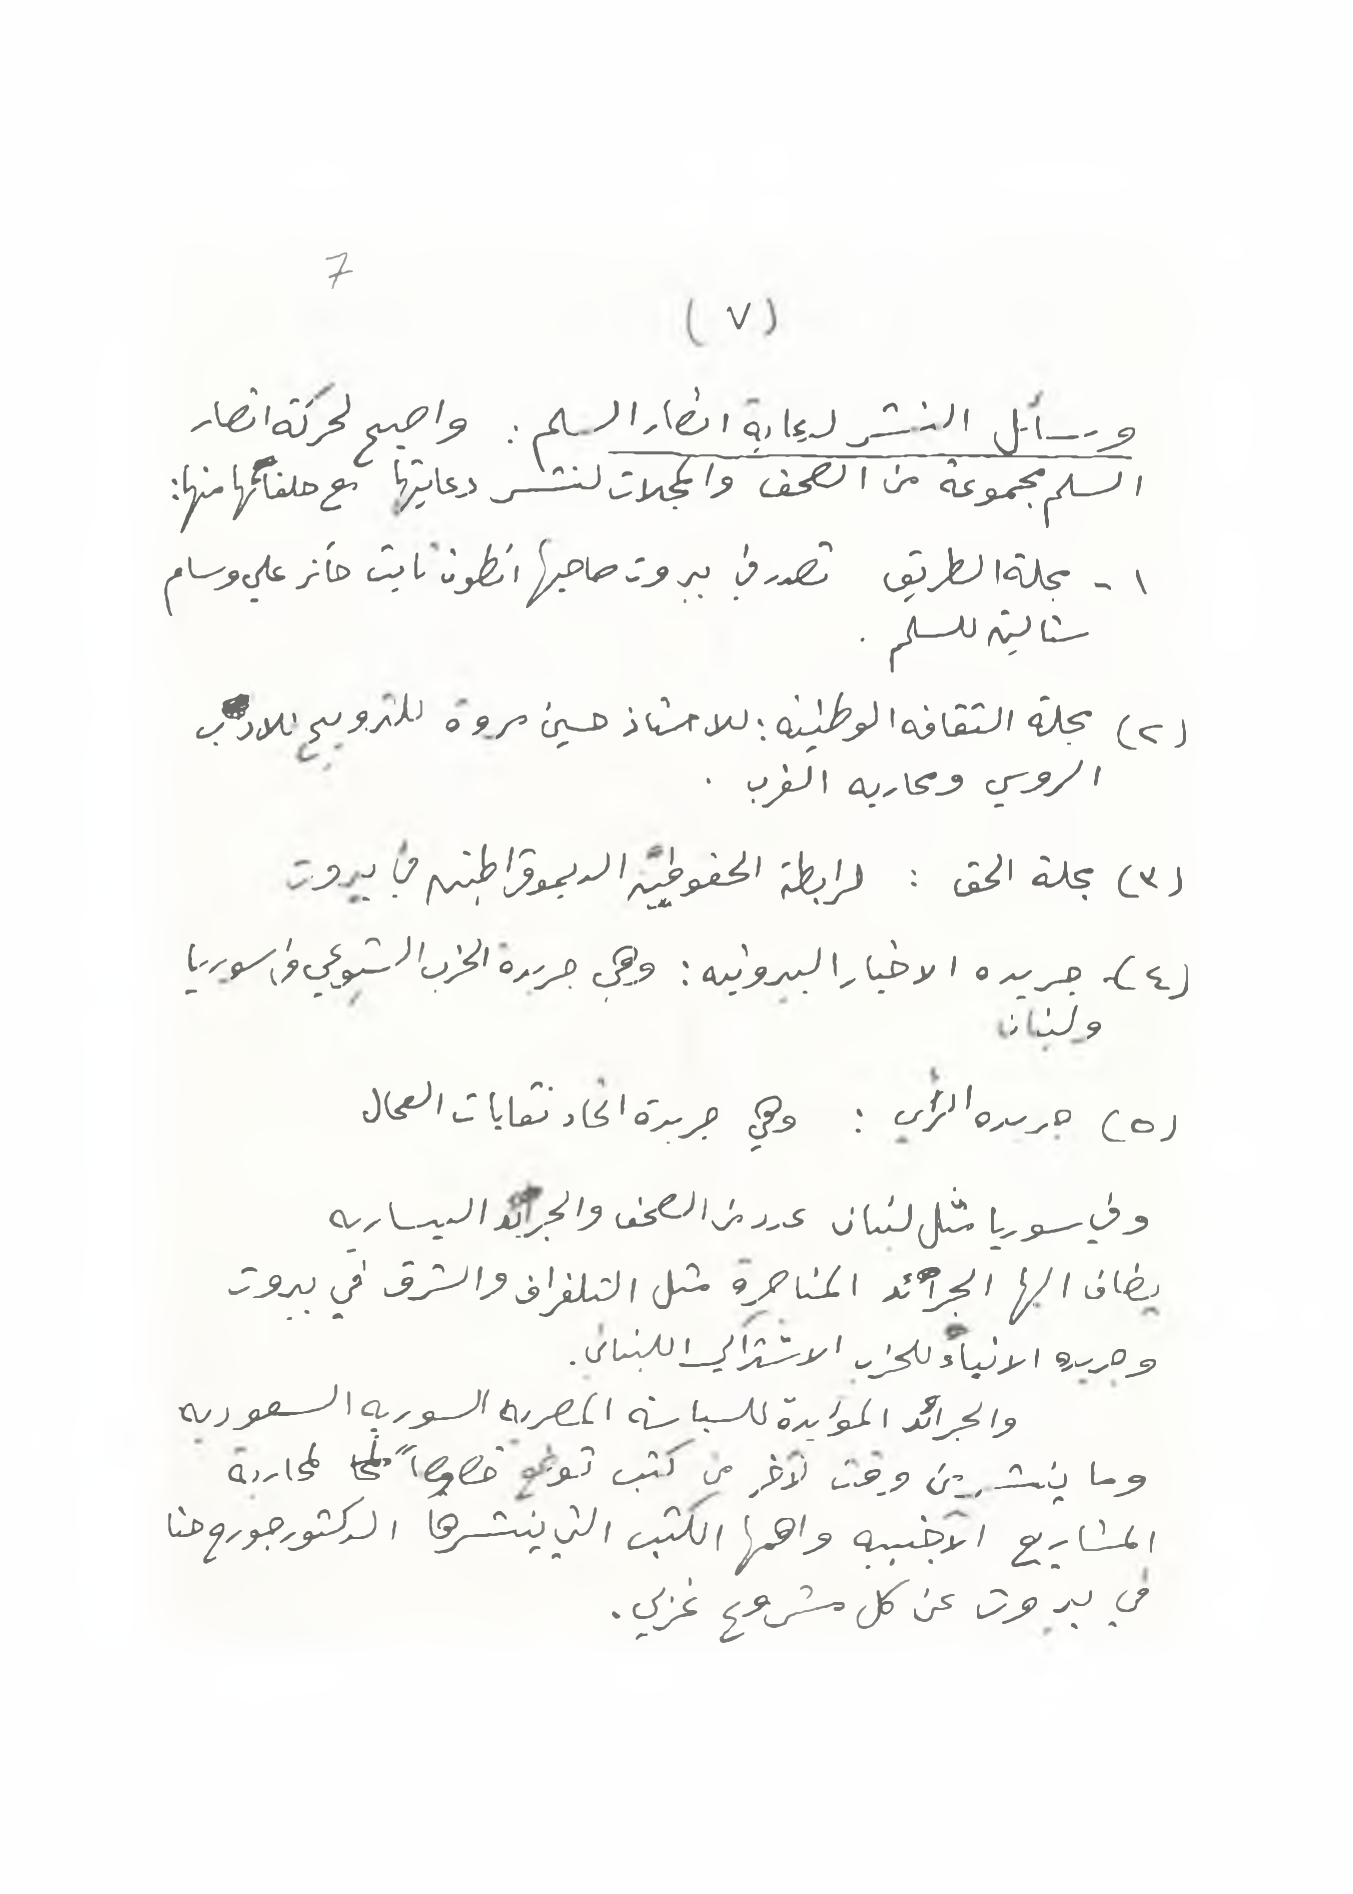 7
( ٧ )
وسائل النشر لدعاية انصار السلم : واصبح لحركة انصار
السلم مجموعة من الصحف والمجلات لنشر دعايتها مع حلفائها منها:
١ - مجلة الطريق تصدر في بيروت صاحبها انطون ثابت حائز على وسام
ستالين للسلم .
(٢) مجلة الثقافه الوطنيه : للاستاذ حسين مروة للترويج للادب
الروسي ومحاربه الغرب .
(٣) مجلة الحق : لرابطة الحقوقيين الديموقراطين في بيروت
(٤)- جريده الاخبار البيروتيه : وهي جريدة الحزب الشيوعي في سوريا
ولبنان
(٥) جريده الرأي : وهي جريدة اتحاد نقابات العمال
وفي سوريا مثل لبنان عدد من الصحف والجرائد اليساريه
يضاف اليها الجرائد المناصرة مثل التلغراف والشرق في بيروت
وجريده الانباء للحزب الاشتراكي اللبناني .
والجرائد المؤايدة للسياسة المصريه السوريه السعوديه
وما ينشر من وقت لآخر من كتب توضع خصوصاً لمحاربة
المشاريع الآجنبيه واهمها الكتب التي ينشرها الدكتور جورج حنا
في بيروت عن كل مشروع غربي .